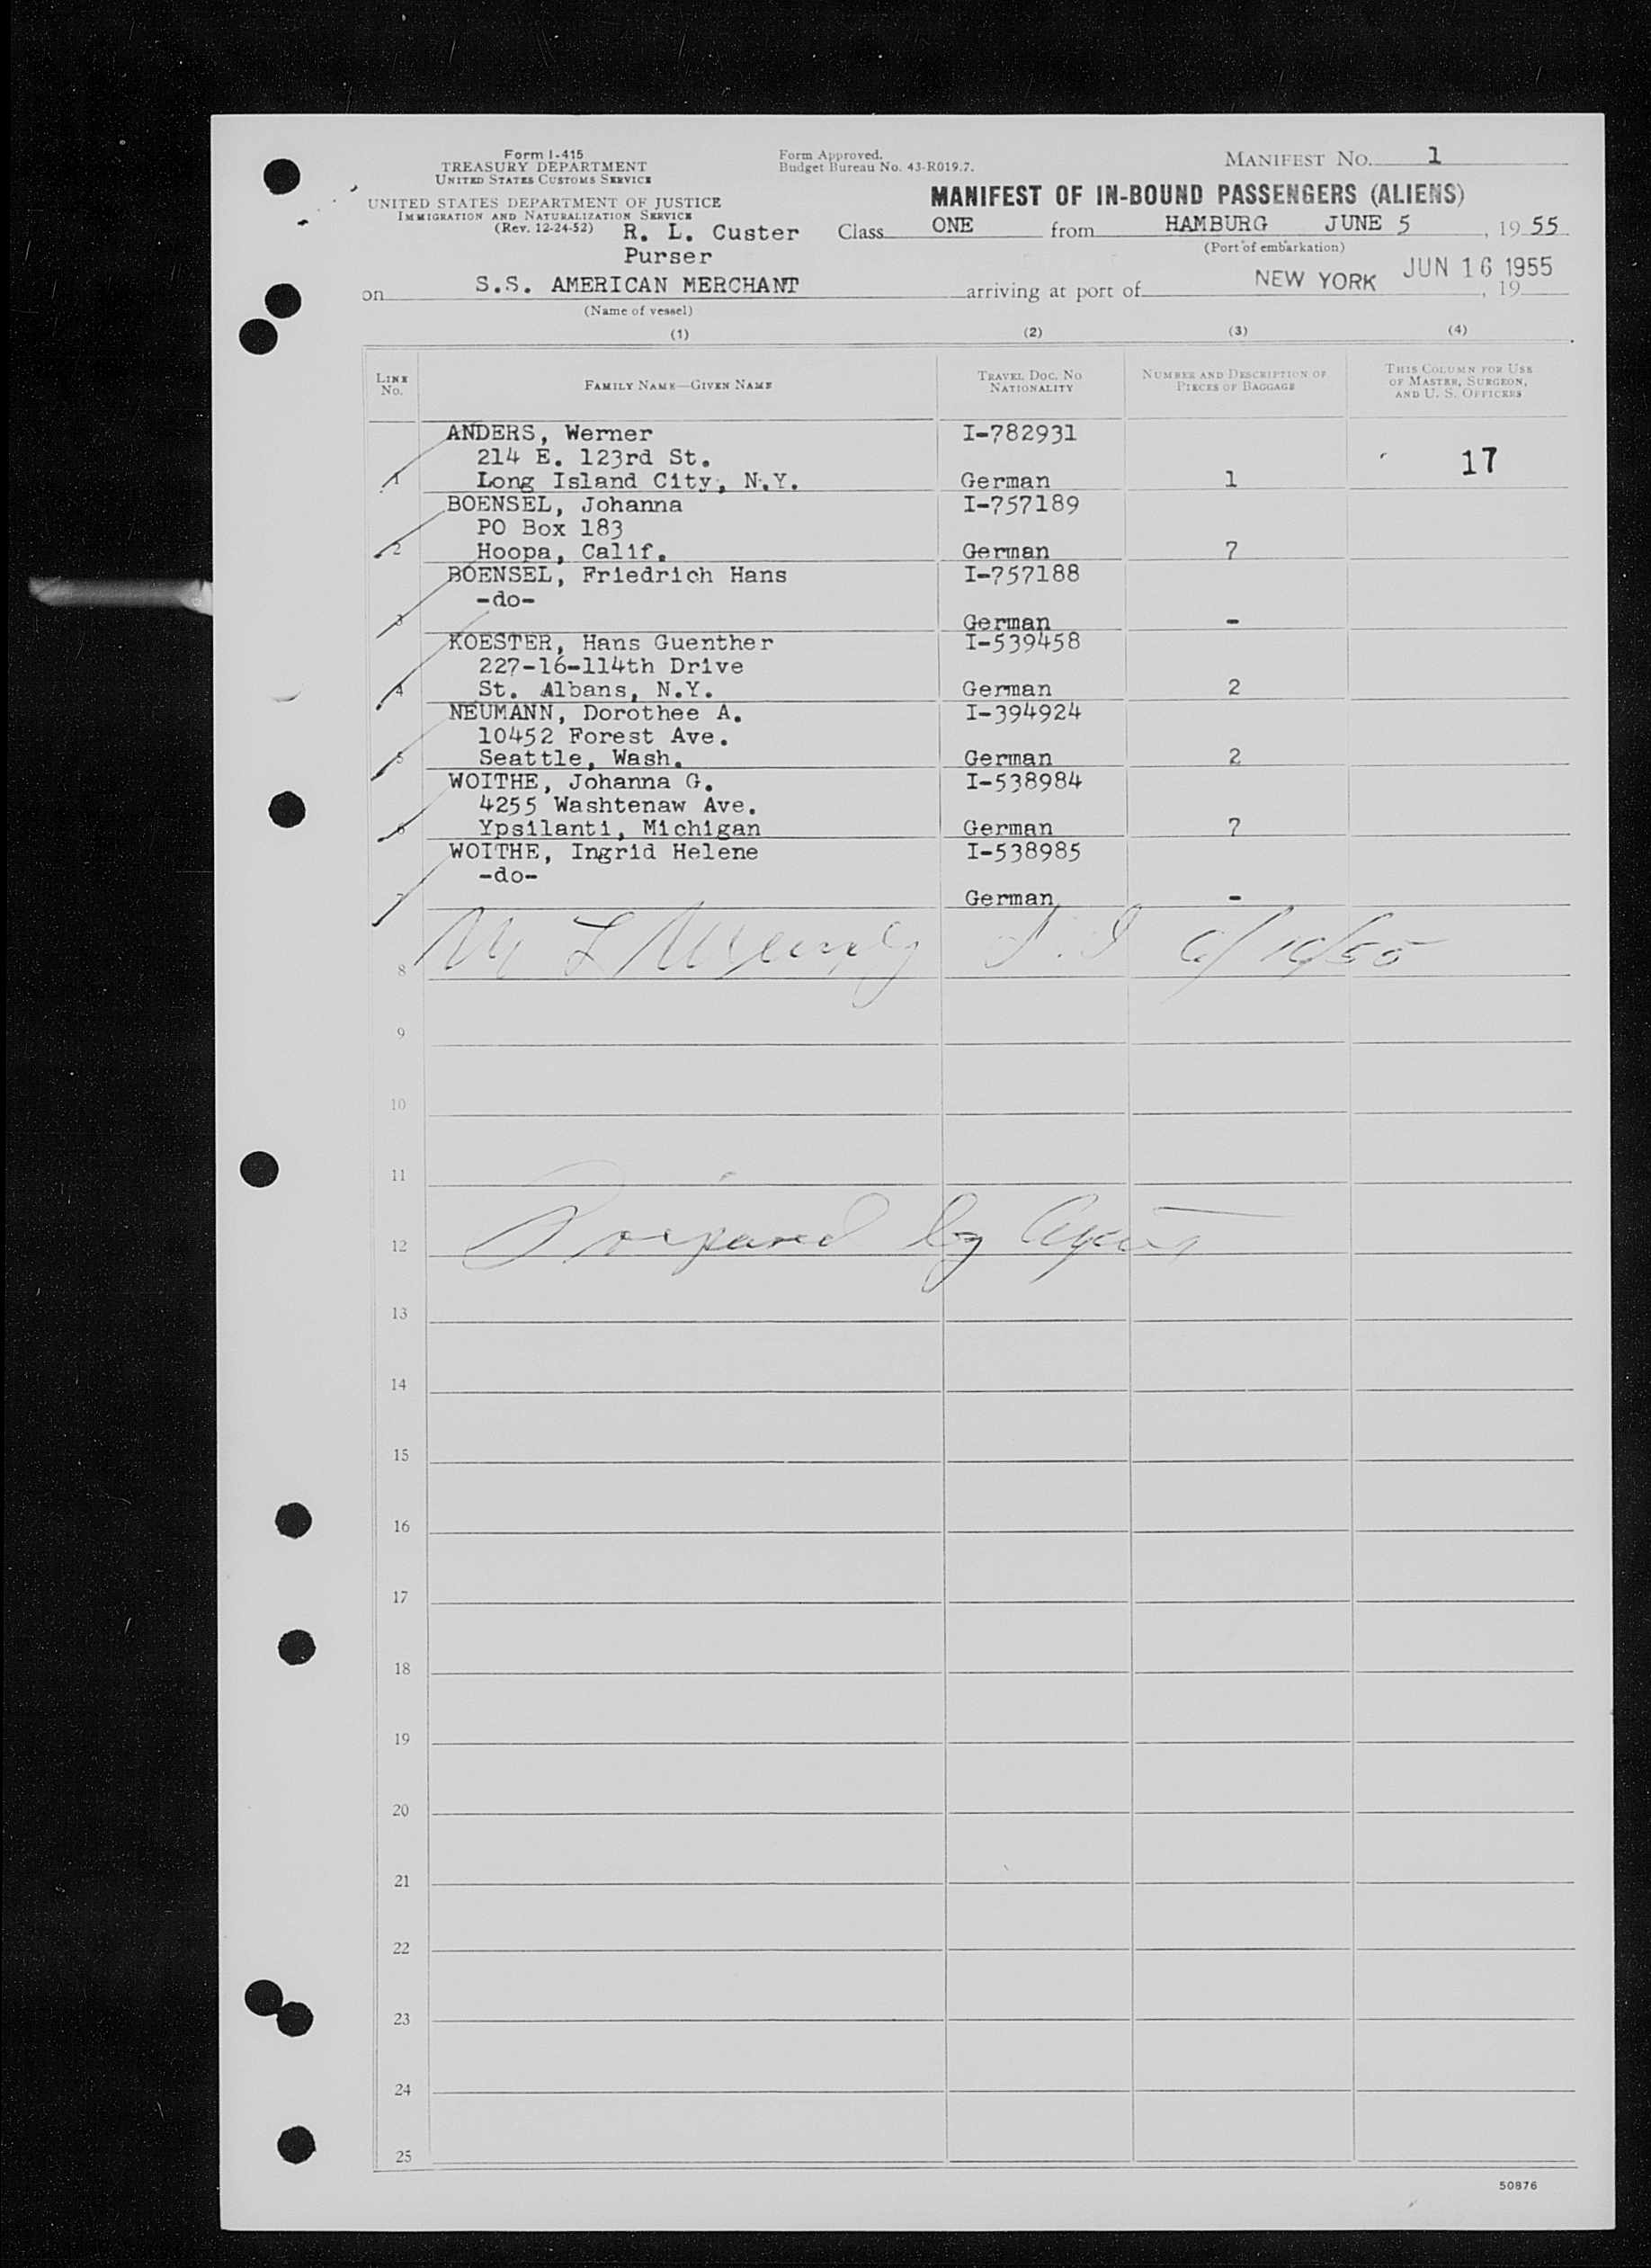 Form I-415
TREASURY DEPARTMENT
UNITED STATES CUSTOMS SERVICE
UNITED STATES DEPARTMENT OF JUSTICE
IMMIGRATION AND NATURALIZATION SERVICE
(Rev. 12-24-52)
R. L. Custer
Purser
Form Approved.
Budget Bureau No. 43-R019.7.
MANIFEST NO. 1
MANIFEST OF IN-BOUND PASSENGERS (ALIENS)
Class ONE from HAMBURG JUNE 5, 19 55
(Port of embarkation)
on S.S. AMERICAN MERCHANT arriving at port of NEW YORK JUN 16 1955, 19
(Name of vessel)
(1) (2) (3) (4)
LINE No. FAMILY NAME—GIVEN NAME TRAVEL DOC. NO NATIONALITY NUMBER AND DESCRIPTION OF PIECES OF BAGGAGE THIS COLUMN FOR USE OF MASTER, SURGEON, AND U. S. OFFICERS
ANDERS, Werner I-782931
214 E. 123rd St. 17
1 Long Island City, N.Y. German 1
BOENSEL, Johanna I-757189
PO Box 183
2 Hoopa, Calif. German 7
BOENSEL, Friedrich Hans I-757188
-do-
3 German -
KOESTER, Hans Guenther I-539458
227-16-114th Drive
4 St. Albans, N.Y. German 2
NEUMANN, Dorothee A. I-394924
10452 Forest Ave.
5 Seattle, Wash. German 2
WOITHE, Johanna G. I-538984
4255 Washtenaw Ave.
6 Ypsilanti, Michigan German 7
WOITHE, Ingrid Helene I-538985
-do-
7 German -
8 6/16/55
9
10
11
12 Prepared by Agent
13
14
15
16
17
18
19
20
21
22
23
24
25
50876